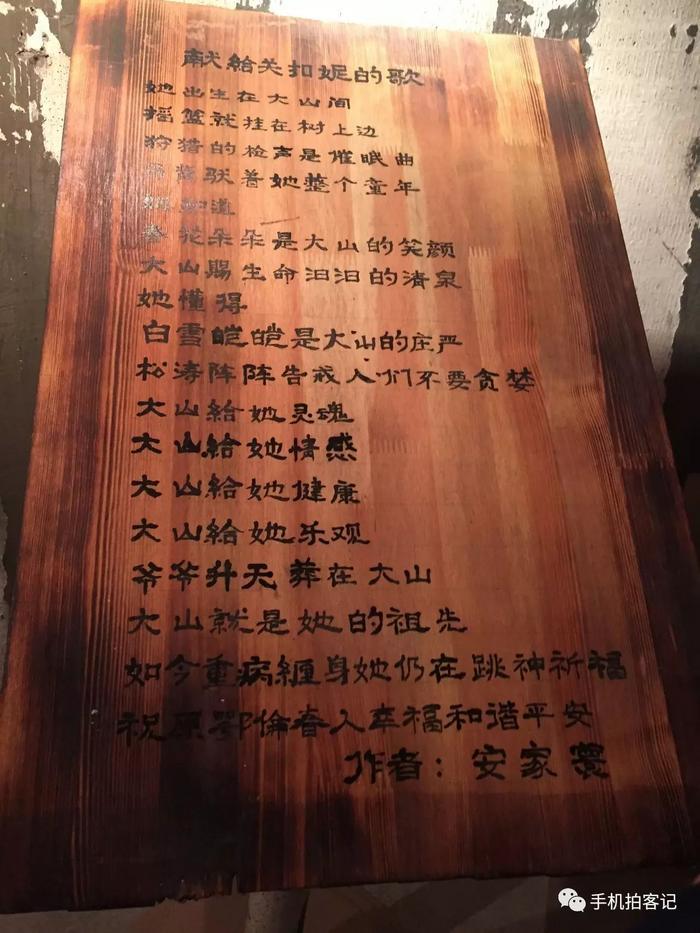 献給关扣妮的歌
她出生在大山间
摇篮就挂在树上边
狩猎的枪声是催眠曲
驮着她整个童年
她知道
春花朵朵是大山的笑颜
大山賜生命汩汩的清泉
她懂得
白雪皑皑是大山的庄严
松涛阵阵告戒人们不要贪婪
大山給她灵魂
大山給她情感
大山給她健康
大山給她乐观
爷爷升天葬在大山
大山就是她的祖先
如今重病缠身她仍在跳神祈福
祝愿鄂倫春人幸福和谐平安
作者：安家
手机拍客记